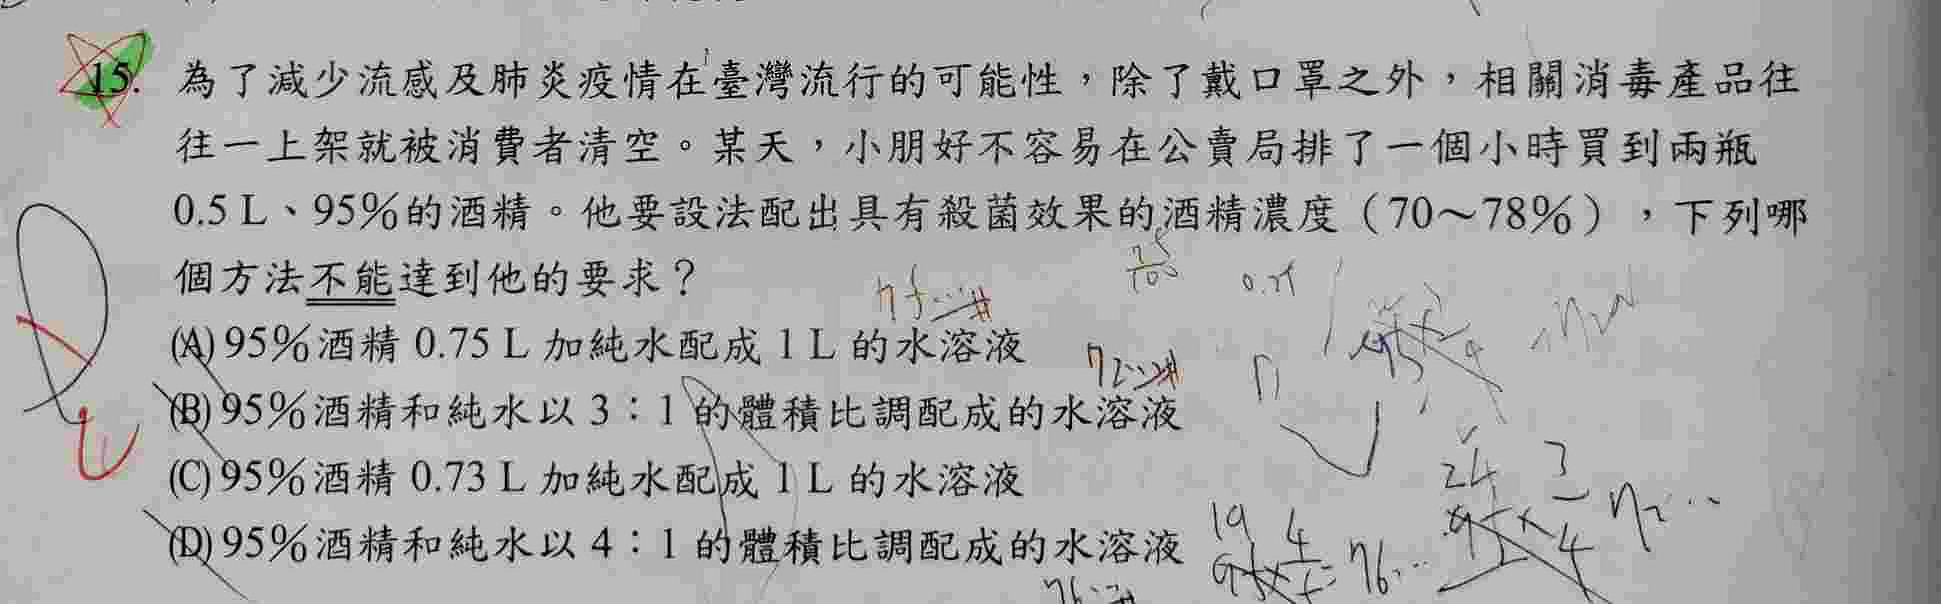 15. 為了減少流感及肺炎疫情在臺灣流行的可能性,除了戴口罩之外,相關消毒產品往
往一上架就被消費者清空。某天,小朋好不容易在公賣局排了一個小時買到兩瓶
0.5 L、95%的酒精。他要設法配出具有殺菌效果的酒精濃度(70～78%),下列哪
個方法不能達到他的要求?
(A) 95%酒精 0.75 L 加純水配成 1 L 的水溶液
(B) 95%酒精和純水以 3：1 的體積比調配成的水溶液
(C) 95%酒精 0.73 L 加純水配成 1 L 的水溶液
(D) 95%酒精和純水以 4：1 的體積比調配成的水溶液